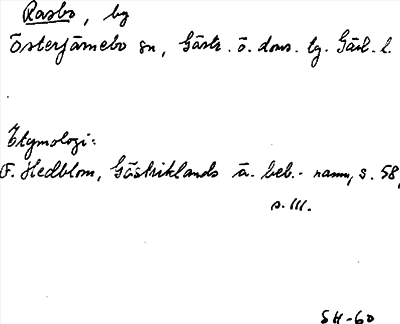 Rasbo, by
Österfärnebo sn, Gästr. ö. doms. lg. Gävl. l.
Etymologi:
F. Hedblom, Gästriklands ä. beb.- namn, s. 58,
s. 111.
SH-60